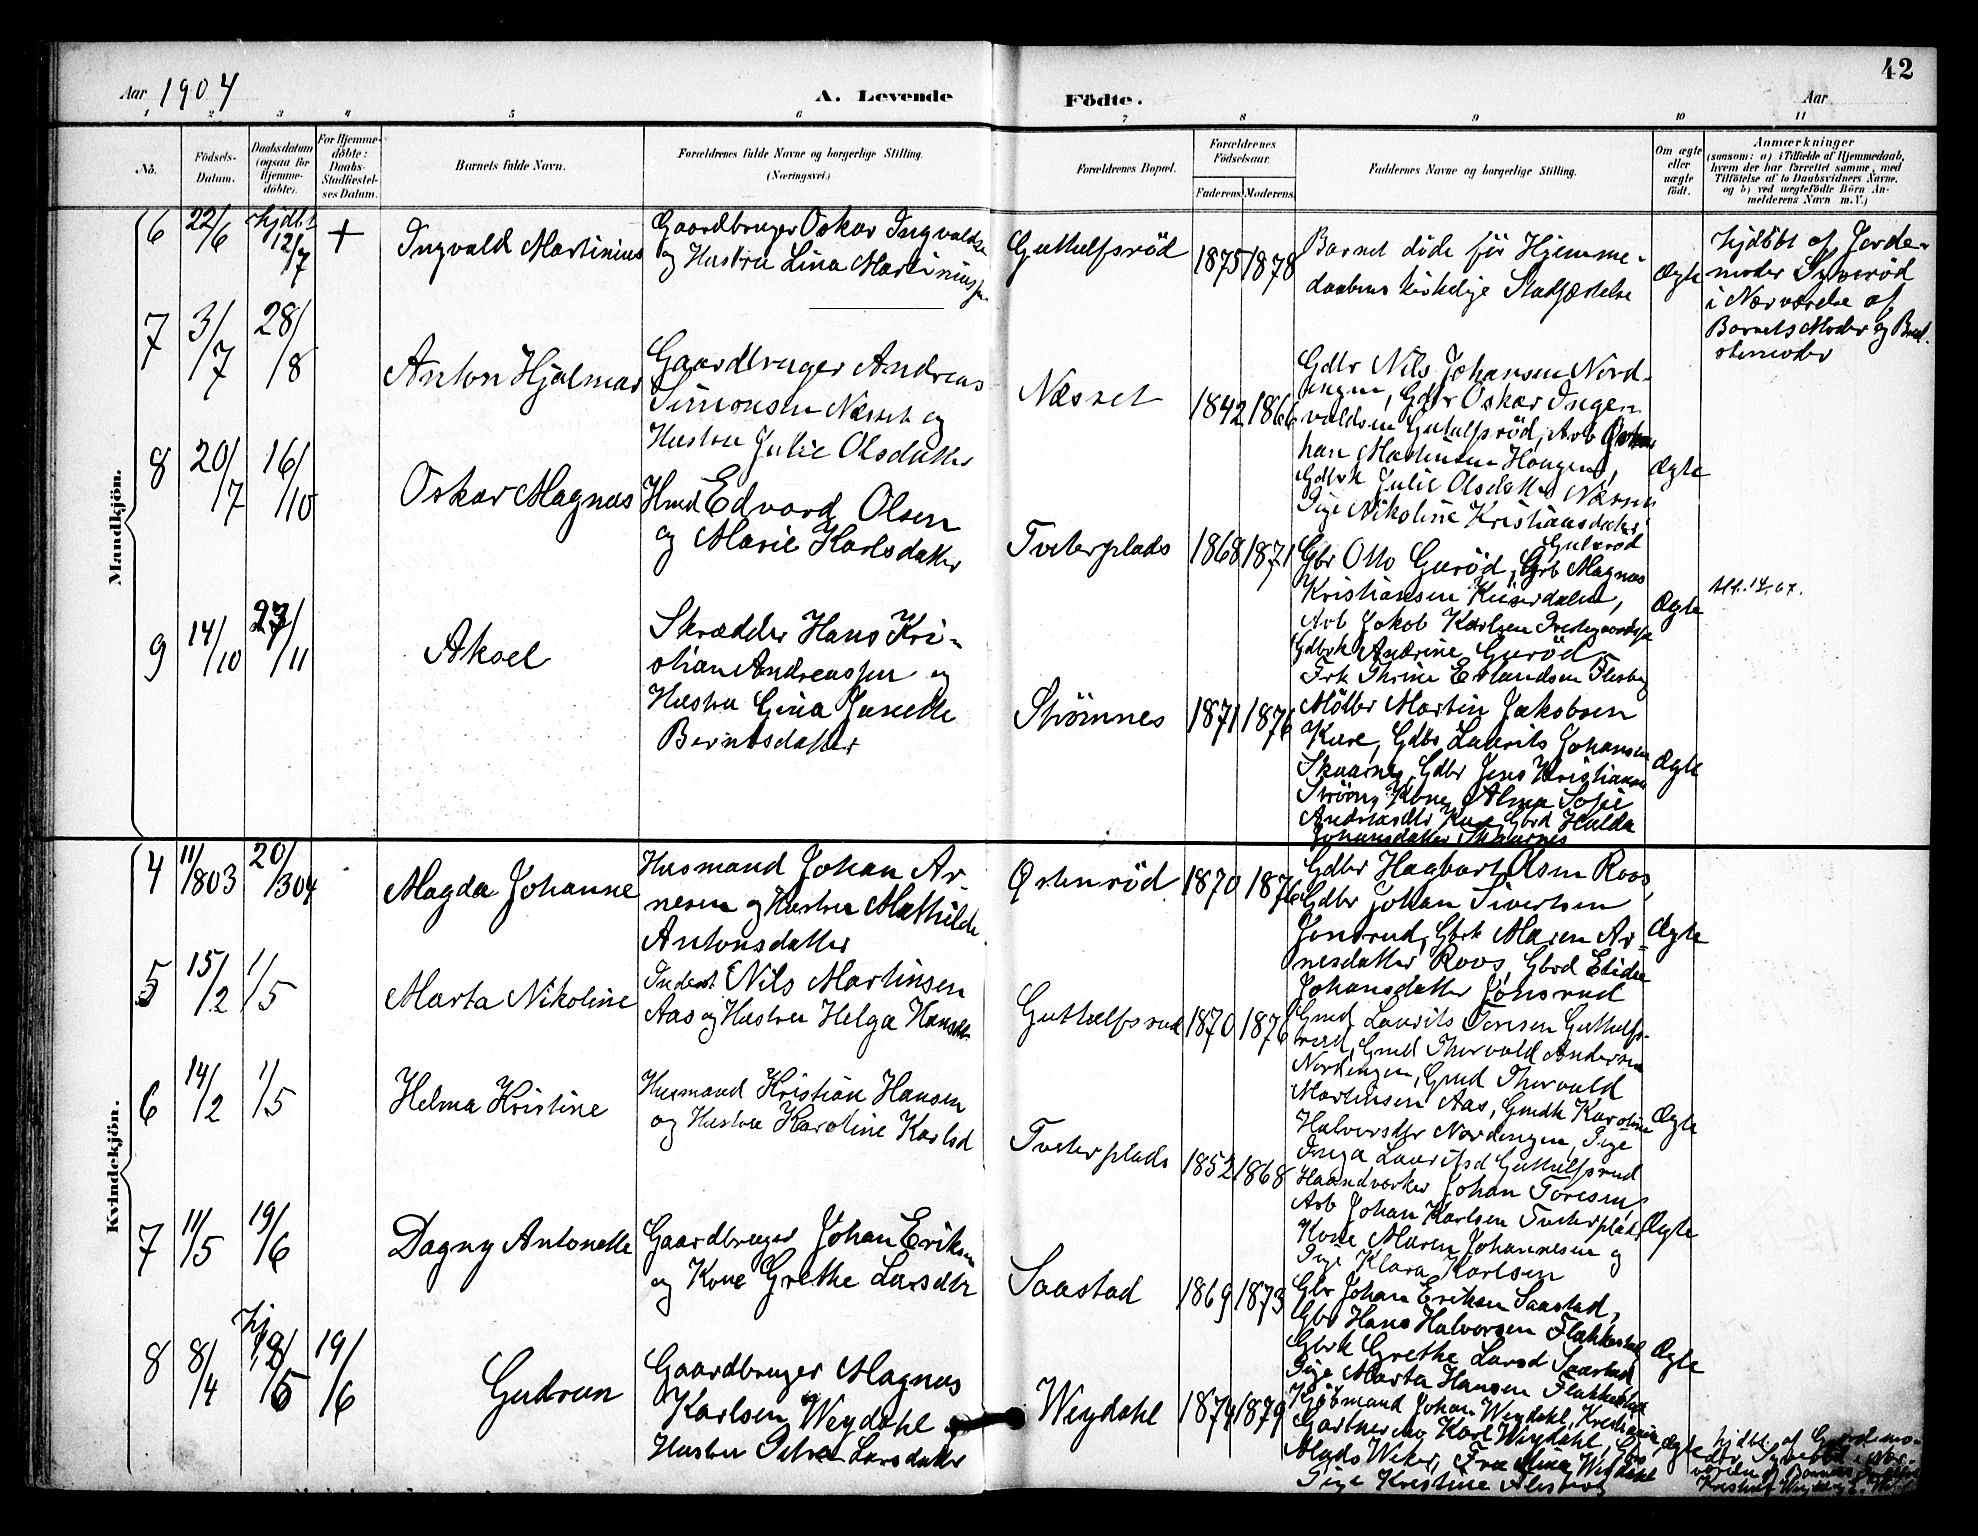 42
Aar 1904
A. Levende
Födte.
Aar
1 2 3 4 5 6 7 8 9 10 11
No.
Födsels-
Datum.
Daabsdatum
(ogsaa for
Hjemme-
döbte).
For Hjemme-
döbte:
Daabs-
Stadfæstel-
ses Datum.
Barnets fulde Navn.
Forældrenes fulde Navne og borgerlige Stilling.
(Næringsvei.)
Forældrenes Bopæl.
Forældrenes
Födselsaar.
Faderens
Moderens
Faddernes Navne og borgerlige Stilling.
Om ægte
eller
uægte
födt.
Anmærkninger
(saasom: a) i Tilfælde af Hjemmedaab,
hvem der har forrettet samme, med
Tilföielse af to Daabsvidners Navne.
og b) ved uægtefödte Börn An-
melderens Navn m.V.)
Mandkjön.
6
22/6
Hjdbt
12/7
+
Ingvald Martinius
Gaardbruger Oskar Ingvalds
og Hustru Lina Martiniusen
Guthulfsröd
1875
1878
Barnet döde för Hjemme-
daabens kirkelige Stadfæstelse
Ægte
Hjdöbt af Jorde-
moder Syveröd
i Nærværelse af
Barnets Moder og Bed-
stemoder
7
3/7
28/8
Anton Hjalmar
Gaardbruger Andreas
Simonsen Næsset og
Hustru Julie Olsdatter
Næsset
1842
1866
Gdbr Nils Johansen Nord-
engen, Gdbr Oskar Inge-
valdsen Guthulfsröd, Arb
Martinsen Haugen,
Gdbrk Julie Olsdatter Næsset
Pige Nikoline Kristiansdatter
Gulsröd
Ægte
8
20/7
16/10
Oskar Magnus
Hmd Edvard Olsen
og Marie Karlsdatter
Tveterplads
1868
1871
Gbr Otto Guröd, Grb Magnus
Kristiansen
Arb Jakob Karlsen
Gdbrk Andrine Guröd
Frk Thrine Erlandsen Flesberg
Ægte
9
14/10
27/11
Aksel
Skrædder Hans Kri-
stian Andreassen og
Hustru Gina Janette
Berntsdatter
Strömnes
1871
1876
Möller Martin Jakobsen
Kure, Gdbr Laurits Johansen
Skaarnes, Gdbr Jens Kristiansen
Kone Alma Sofie
Andreasdtr Kure, Gbrd Hulda
Johansdatter Skaarnes
Ægte
Kvindekjön.
4
11/803
20/304
Magda Johanne
Husmand Johan Ar-
nesen og Hustru Mathilde
Antonsdatter
Östenröd
1870
1876
Gdbr Hagbart Olsen Roos,
Gdbr Johan Sivertsen
Jonsrud, Gbrk Maren Ar-
nesdatter Roos, Gbrd Elida
Johansdatter Jonsrud
Ægte
5
15/2
1/5
Marta Nikoline
Inderst Nils Martinsen
Aas og Hustru Helga Hansdtr
Guthulfsrud
1870
1876
Gmd Laurits Toresen Guthulfs-
rud, Gmd Thorvald Andersen
Nordengen, Gmd Thorvald
Martinsen Aas, Gmdk Karoline
Halvorsdtr Nordengen, Pige
Inga Lauritsd Guthulfsrud
Ægte
6
14/2
1/5
Helma Kristine
Husmand Kristian Hansen
og Hustru Karoline Karlsd
Tveterplads
1852
1868
Haandværker Johan Toresen,
Arb Johan Karlsen Tveterplads
Kone Maren Johannesen og
Pige Klara Karlsen
Ægte
7
11/5
19/6
Dagny Antonette
Gaardbruger Johan Eriksen
og Kone Grethe Larsdtr
Saastad
1869
1873
Gbr Johan Eriksen Saastad,
Gbr Hans Halvorsen Flakkestad
Gbrk Grethe Larsd Saastad
Pige Marta Hansen Flakkestad
Ægte
8
8/4
Hj
/5
19/6
Gudrun
Gaardbruger Magnus
Karlsen Weydahl og
Hustru Petra Larsdatter
Weydahl
1874
1879
Kjöbmand Johan Weydahl, Kristiania,
Gartner Karl Weydahl,
Mads Frue Weydahl
Pige Kristine
Ægte
Hjdbt af Gjordemo-